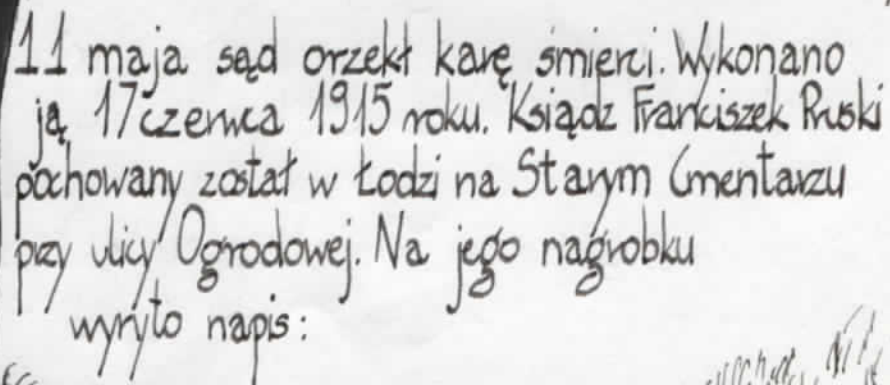 11 maja sąd orzekł karę śmierci. Wykonano
ją 17 czerwca 1915 roku. Ksiądz Franciszek Ruski
pochowany został w Łodzi na Starym Cmentarzu
przy ulicy Ogrodowej. Na jego nagrobku
wyryto napis: